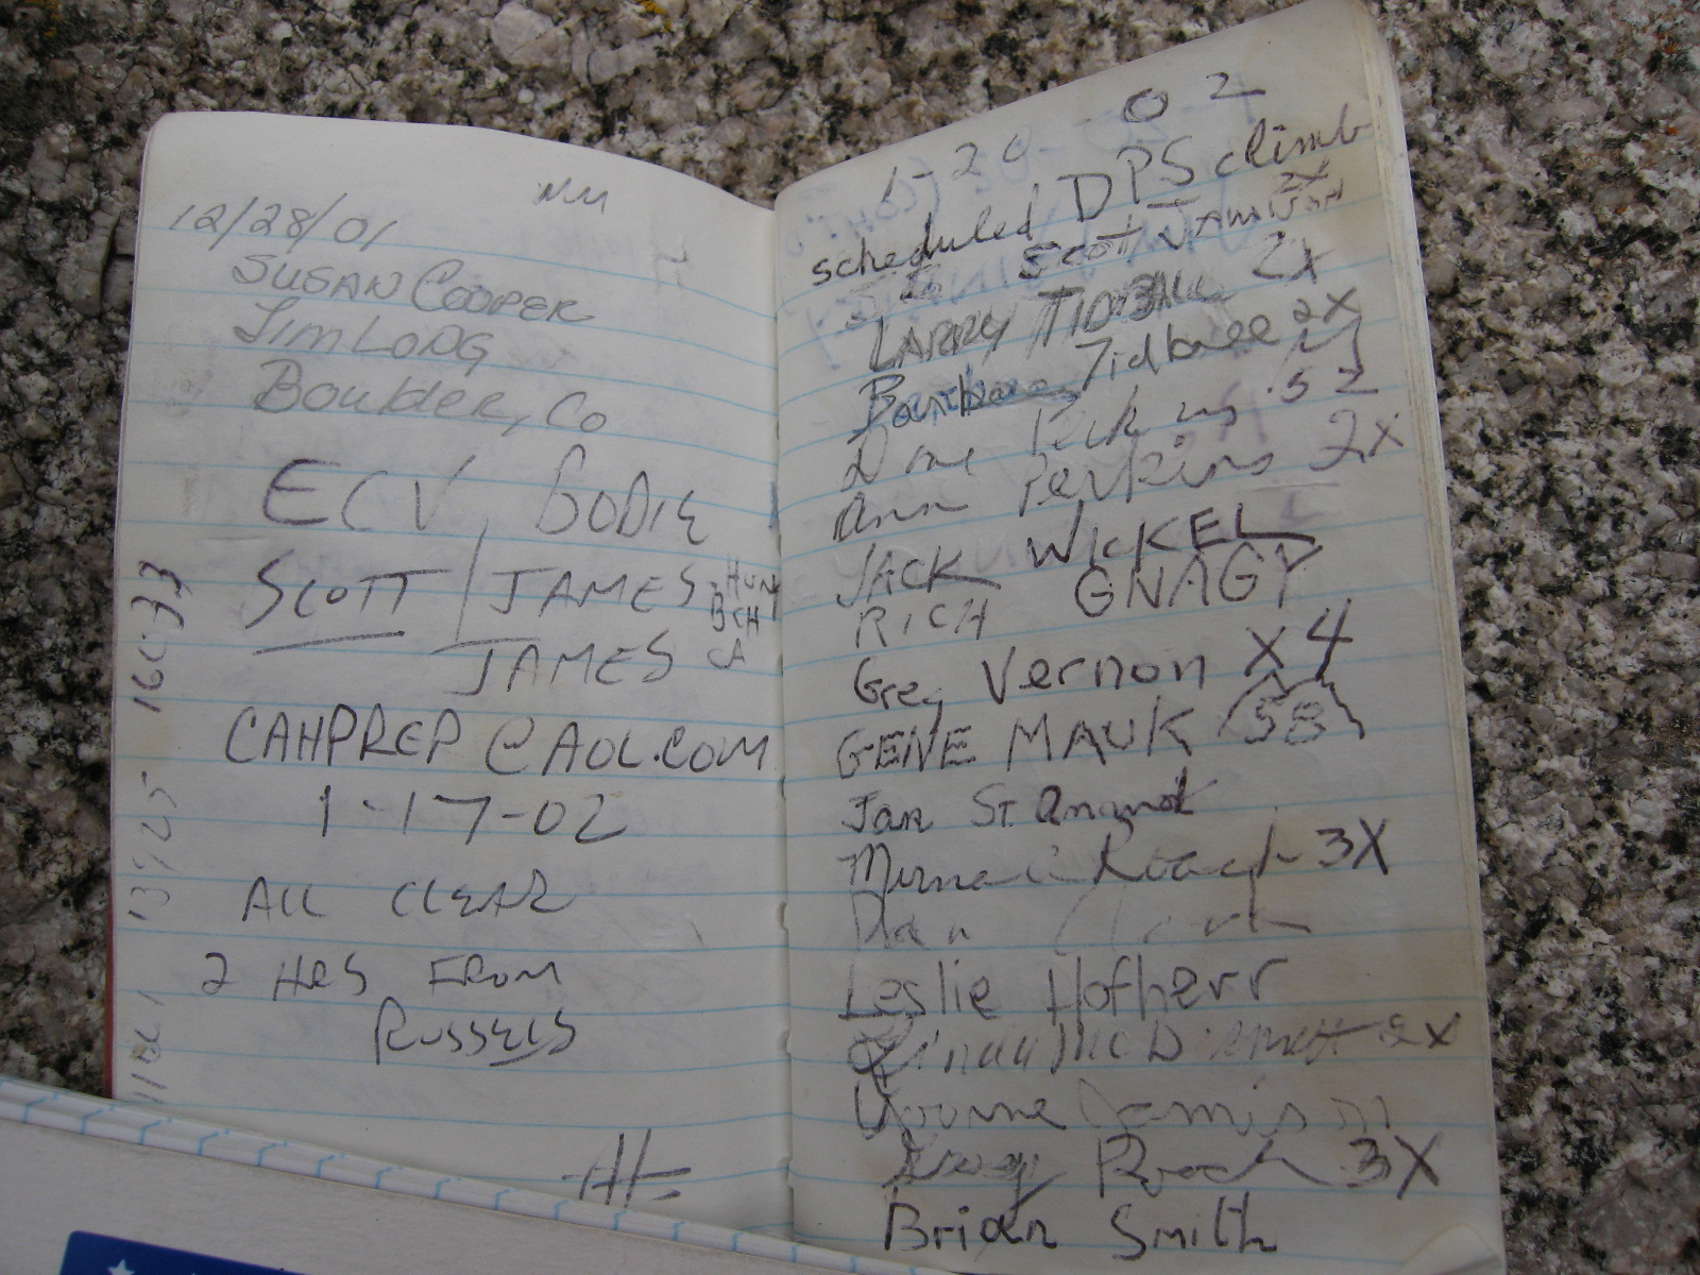 12/28/01
SUSAN COOPER
JIM LONG
Boulder, Co
ECV BODIE
SCOTT / JAMES - HUN
BCH
JAMES CA
CAHPREP@AOL.COM
1-17-02
ALL CLEAR
2 HRS FROM
RUSSELS
1-20-02
scheduled DPS climb
SCOTT JAMISON 2X
LARRY TIDBALL 2X
Barbara Tidball 2X
Perkins 52
Ann Perkins 2X
JACK WICKEL
RICH GNAGY
Greg Vernon X4
GENE MAUK 58
Jan St. Amand
Mirna Roach 3X
Dan Clark
Leslie Hofherr
McDermott 2X
Yvonne Jamison
Greg Roach 3X
Brian Smith